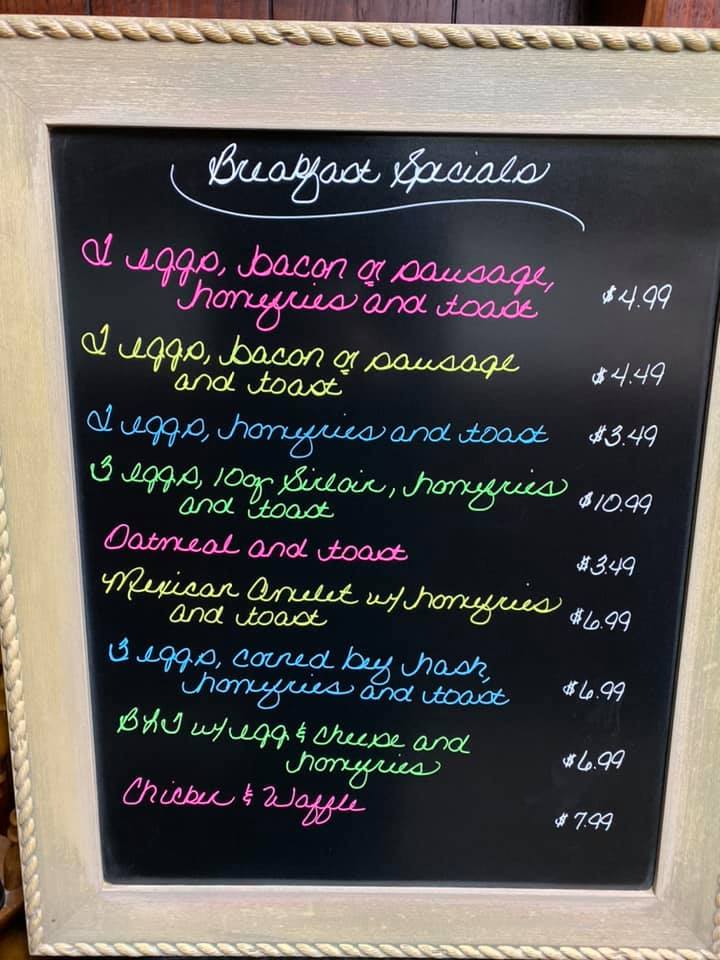 Breakfast Specials
2 eggs, bacon or sausage, $4.99
homefries and toast
2 eggs, bacon or sausage $4.49
and toast
2 eggs, homefries and toast $3.49
3 eggs, 10oz Sirloin, homefries $10.99
and toast
Oatmeal and toast $3.49
Mexican Omelet w/ homefries $6.99
and toast
3 eggs, corned beef hash, $6.99
homefries and toast
BLT w/ egg & cheese and $6.99
homefries
Chicken & Waffle $7.99